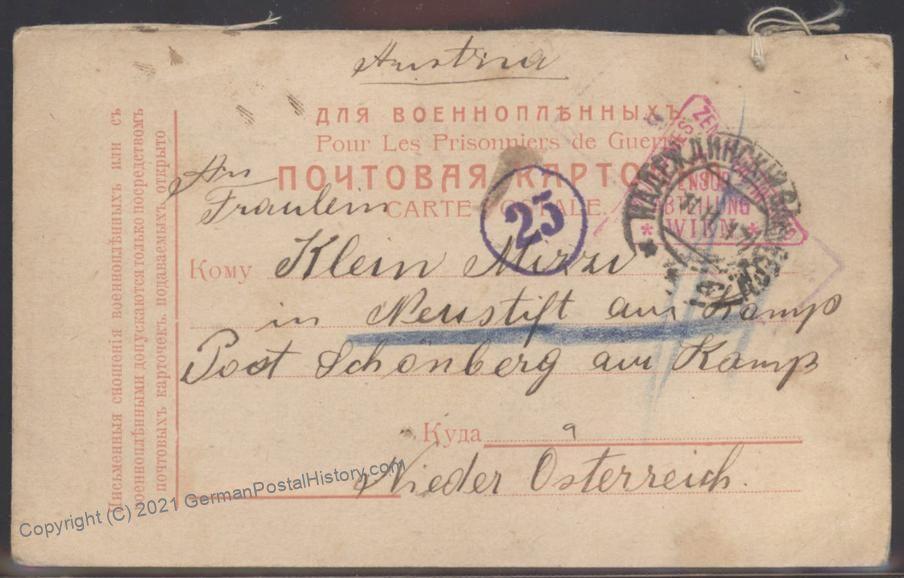 Austria
ДЛЯ ВОЕННОПЛѢННЫХЪ
Pour Les Prisonniers de Guerre
ПОЧТОВАЯ КАРТОЧКА
CARTE POSTALE.
An
Fräulein
25
Кому Klein Mizzi
in Neustift am Kamp
Post Schönberg am Kamp
Куда
Nieder Österreich.
Письменныя сношенія военноплѣнныхъ или съ
военноплѣнными допускаются только посредствомъ
почтовыхъ карточекъ, подаваемыхъ открыто
ZENSUR
ABTEILUNG
* WIEN *
Copyright (C) 2021 GermanPostalHistory.com